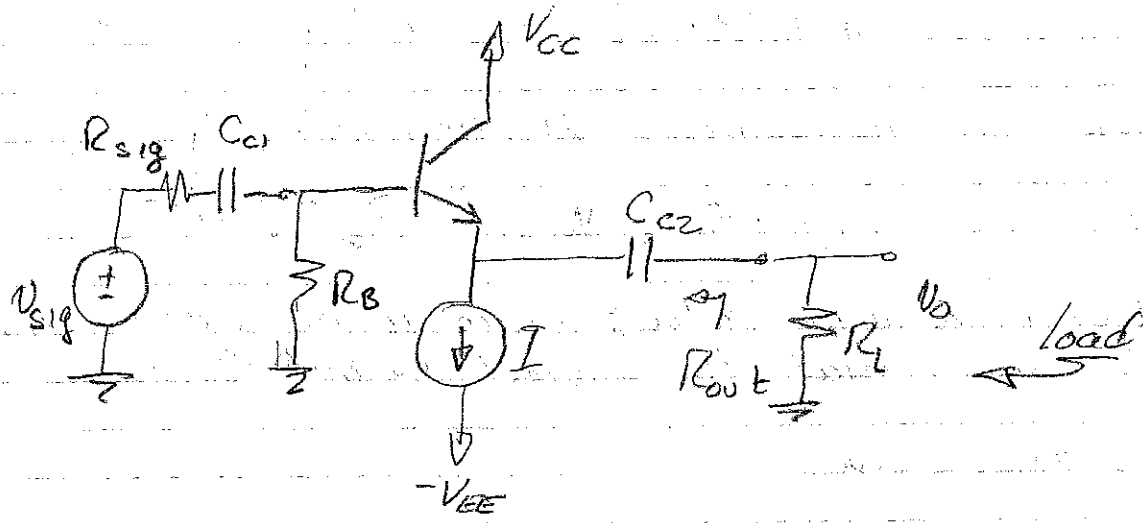 V_CC
R_sig C_C1
C_C2
+
-
v_sig
R_B
I
R_out
R_L
v_o
load
-V_EE